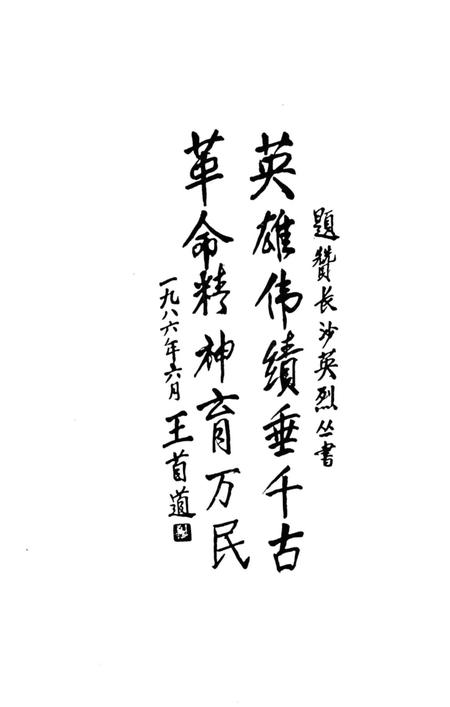 题赞长沙英烈丛书
英雄伟績垂千古
革命精神育万民
一九八六年六月
王首道